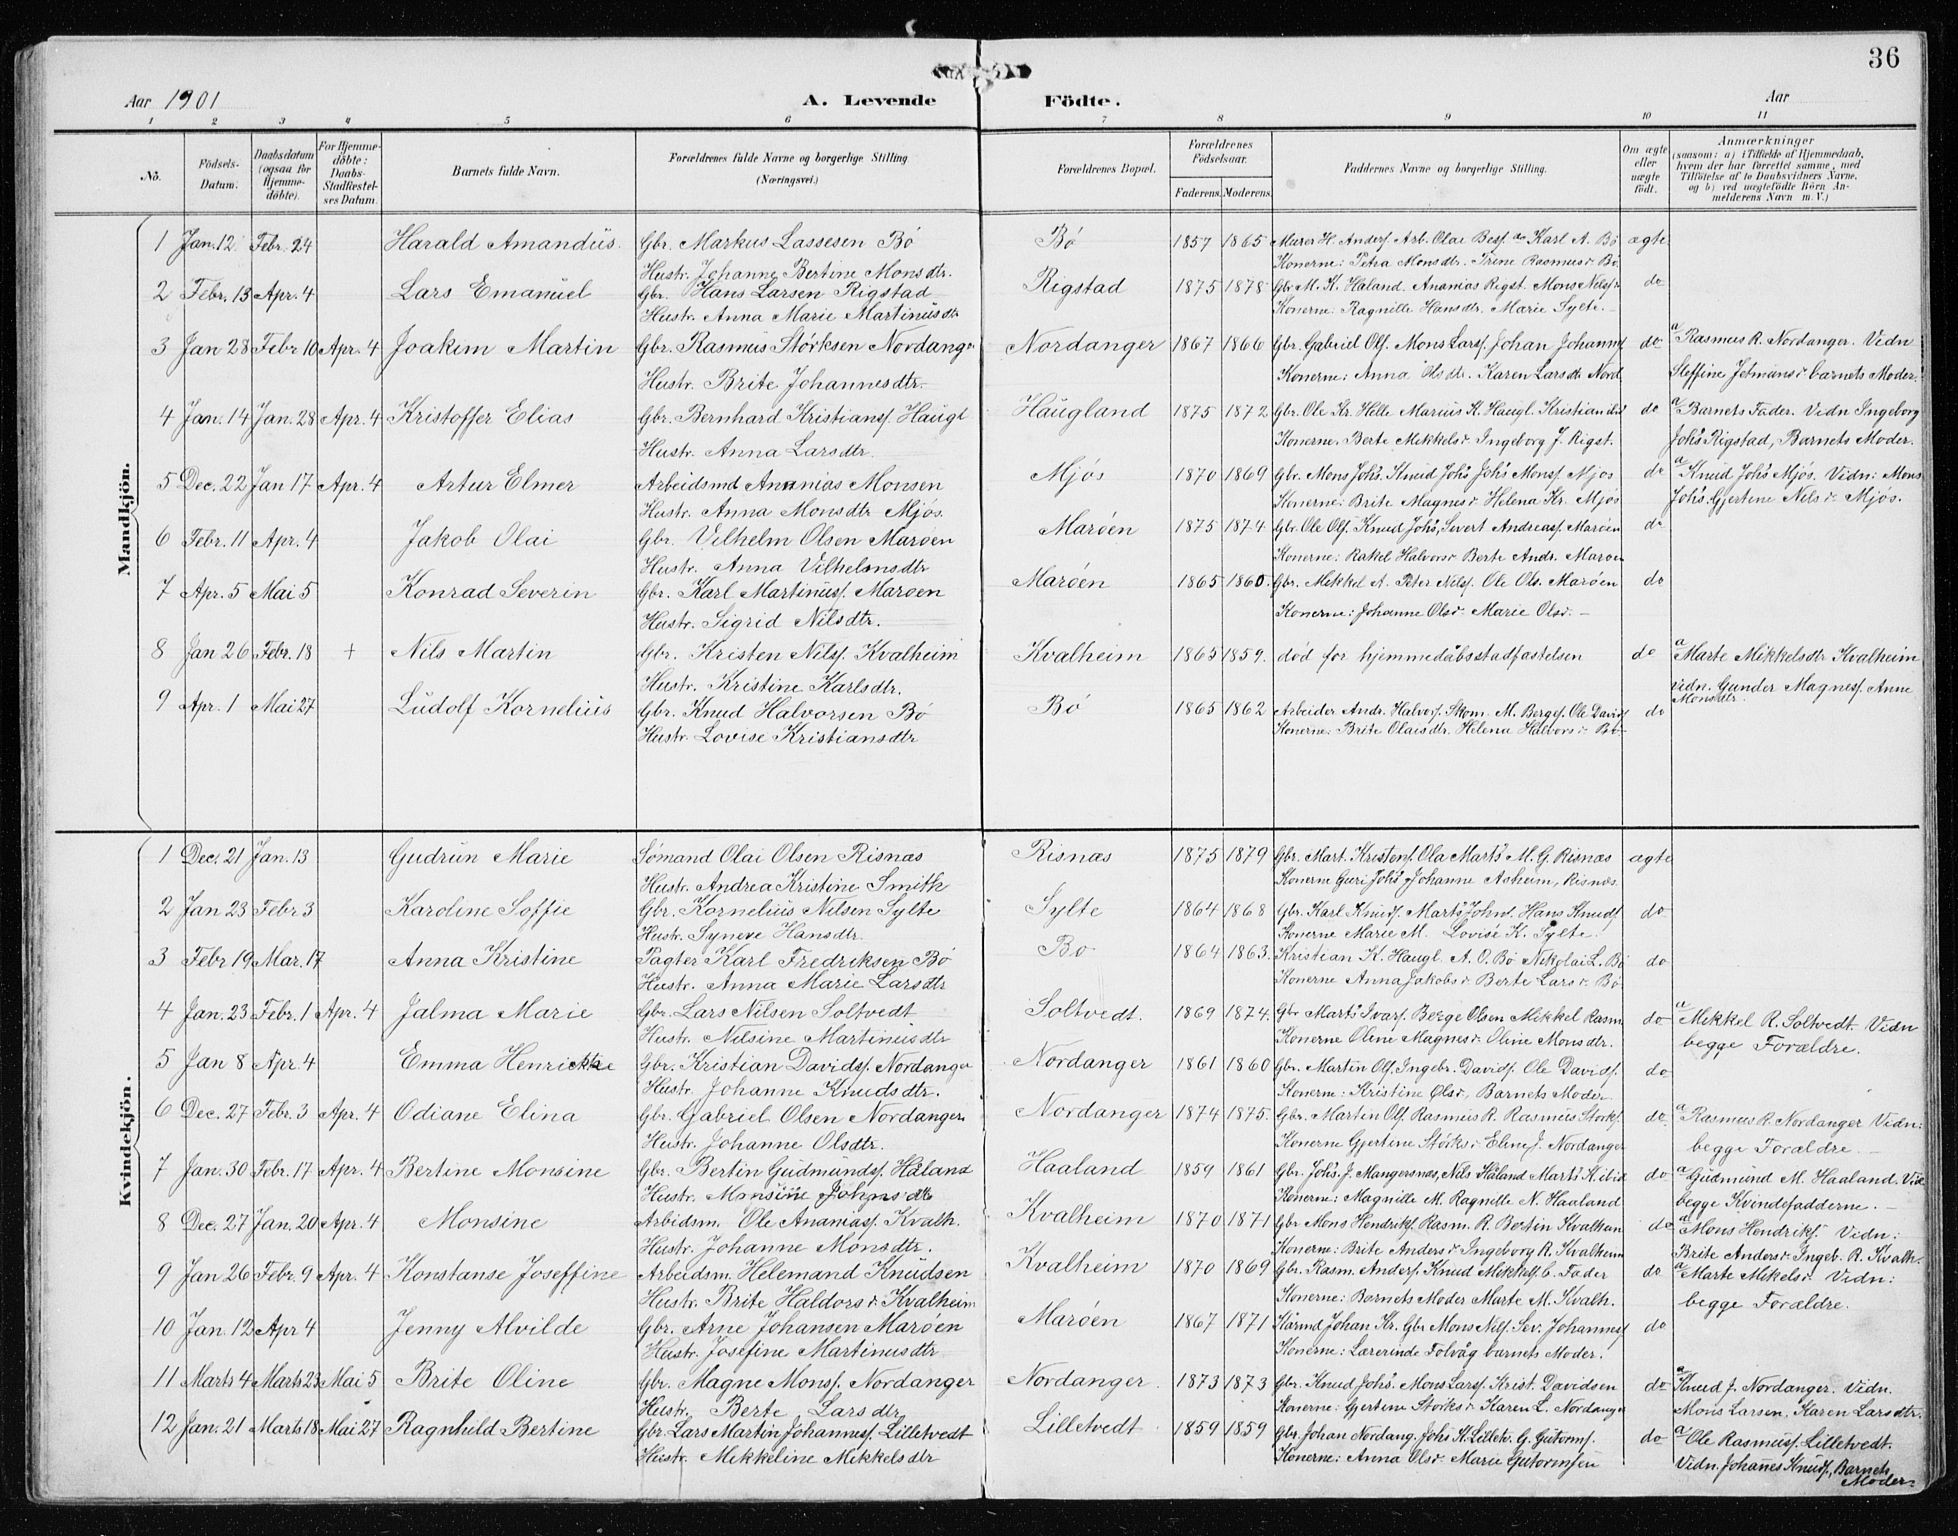 36
Aar 1901 A. Levende Födte. Aar
1 2 3 4 5 6 7 8 9 10 11
No. Födsels-Datum. Daabsdatum (ogsaa for Hjemme-döbte). For Hjemme-döbte: Daabs-Stadfæstel-ses Datum. Barnets fulde Navn. Forældrenes fulde Navne og borgerlige Stilling (Næringsvei.) Forældrenes Bopæl. Forældrenes Födselsaar. Faderens. Moderens. Faddernes Navne og borgerlige Stilling. Om ægte eller uægte födt. Anmærkninger (saasom: a) i Tilfælde af Hjemmedaab, hvem der har forrettet samme, med Tilföielse af to Daabsvidners Navne, og b) ved uægtefödte Börn An-melderens Navn m. V.)
Mandkjön.
1 Jan. 12 Febr. 24 Harald Amandus. Gbr. Markus Lassesen Bö Bö 1857 1865 Murer H. Anders. Arb. Olai Karl A. Bö ægte
Hustr. Johanne Bertine Monsdtr. Konerne: Petra Monsdtr. Trine Rasmusdr Bö
2 Febr. 13 Apr. 4 Lars Emanuel Gbr. Hans Larsen Rigstad Rigstad 1875 1878 Gbr M. K. Haland. Ananias Rigst. Mons Nels. do
Hustr. Anna Marie Martinusdtr Konerne: Ragnille Hansdtr. Marie Sylte.
3 Jan 28 Febr 10 Apr. 4 Joakim Martin Gbr. Rasmus Störksen Nordange Nordanger 1867 1866 Gbr. Gabriel Ols. Mons Lars. Johan Johanns. do a Rasmus R. Nordanger. Vidn
Hustr. Brite Johannesdtr. Konerne: Anna Olsdtr. Karen Larsdtr Nord. Steffine barnets Moder.
4 Jan. 14 Jan. 28 Apr. 4 Kristoffer Elias Gbr. Bernhard Kristians. Haugl Haugland 1875 1872 Gbr. Ole Kr. Helle Marius K. Haugl. Kristian ibid do a Barnets Fader. Vidn Ingeborg
Hustr. Anna Larsdtr. Konerne. Berte Mekkelsdr Ingeborg J. Rigst. Johs Rigstad, Barnets Moder.
5 Dec. 22 Jan 17 Apr. 4 Artur Elmer Arbeidsmd Ananias Monsen Mjös 1870 1869 Gbr. Mons Johs. Knud Johs Johs Mons. Mjos do a Knud Johs Mjös. Vidn: Mons
Hustr. Anna Monsdtr Mjös. Konerne: Brite Magnesdr Helena Kr. Mjos Johs. Gjertine Nilsdr Mjös.
6 Febr. 11 Apr. 4 Jakob Olai Gbr. Vilhelm Olsen Maröen Maröen 1875 1874 Gbr. Ole Ols. Knud Johs, Severt Andreas. Maröen do
Hustr. Anna Vilhelmsdtr Konerne: Rakel Halvorsdr Berte Ands. Maröen
7 Apr. 5 Mai 5 Konrad Severin Gbr. Karl Martinus. Maroen Maröen 1865 1860. Gbr. Mekkel A. Peter Nels. Ole Ols. Maröen do
Hustr. Sigrid Nilsdtr. Konerne: Johanne Olsdr. Marie Olsdr.
8 Jan 26 Febr. 18 + Nils Martin Gbr. Kristen Nils. Kvalheim Kvalheim 1865 1859. död for hjemmedåbsstadfæstelsen do a Marte Mikkelsdtr Kvalheim
Hustr. Kristine Karlsdtr. Vidn. Gunder Magnes. Anne Monsdtr.
9 Apr. 1 Mai 27 Ludolf Kornelius Gbr. Knud Halvorsen Bö Bö 1865 1862 Arbeider Andr. Halvors. Skom. M. Berges. Ole Davids. do
Hustr. Lovise Kristiansdtr Konerne: Brite Olaisdtr. Helena Halvorsdr Bö
Kvindekjön.
1 Dec. 21 Jan. 13 Gudrun Marie Sömand Olai Olsen Risnæs Risnæs 1875 1879 Gbr. Mart. Kristens. Ola Marts M. G. Risnæs ægte
Hustr. Andrea Kristine Smith Konerne Guri Johs Johanne Asheim, Risnæs.
2 Jan 23 Febr 3 Karoline Soffie Gbr. Kornelius Nilsen Sylte Sylte 1864 1868 Gbr. Karl Knuds. Marts Johns. Hans Knuds. do
Hustr. Syneve Hansdtr. Konerne Marie M. Lovise K. Sylte.
3 Febr 19 Mar. 17 Anna Kristine Pagter Karl Fredriksen Bö Bo 1864 1863. Kristian K. Haugl. A. O. Bö Nikolai L. Bö do
Hustr. Anna Marie Larsdtr Konerne Anna Jakobsdr Berte Larsdr Bö
4 Jan. 23 Febr. 1 Apr. 4 Jalma Marie Gbr. Lars Nilsen Soltvedt Soltvedt. 1869 1874. Gbr Marts Ivars. Berge Olsen Mikkel Rasm do a Mikkel R. Soltvedt Vidn
Hustr. Nilsine Martinusdtr Konerne Oline Magnesdr Oline Monsdtr. begge Forældre.
5 Jan 8 Apr. 4 Emma Henrikke Gbr. Kristian Davids. Nordanger Nordanger 1861 1860 Gbr. Martin Ols. Ingebr. Davids. Ole Davids. do
Hustr. Johanne Knudsdtr. Konerne: Kristine Olsdr, Barnets Moder
6 Dec. 27 Febr. 3 Apr. 4 Odiane Elina Gbr. Gabriel Olsen Nordanger Nordanger 1874 1875. Gbr. Martin Ols. Rasmus R. Rasmus Störks. do a Rasmus R. Nordanger Vidn:
Hustr. Johanne Olsdtr. Konerne Gjertine Störksdr Eline J. Nordanger begge Forældre.
7 Jan. 30 Febr. 17 Apr. 4 Bertine Monsine Gbr. Bertin Gudmunds. Håland Haaland 1859 1861 Gbr. Johs. J. Mangersnæs, Nils Håland Marts K. ibid do a Gudmund M. Haaland. Vid
Hustr. Monsine Johnsdtr Konerne: Magnille M. Ragnille N. Haaland begge Kvindefadderne.
8 Dec. 27 Jan. 20 Apr. 4 Monsine Arbidsm. Ole Ananias. Kvalh. Kvalheim 1870 1871 Gbr Mons Hendriks. Rasm. R. Bertin Kvalhm do a Mons Hendriks. Vidn:
Hustr. Johanne Monsdtr. Konerne: Brite Andersdr Ingeborg R. Kvalheim Brite Andersdr Ingeb. R. Kvalh.
9 Jan 26 Febr. 9 Apr. 4 Konstanse Joseffine Arbeidsm. Helemand Knudsen Kvalheim 1870 1869 Gbr. Rasm. Anders. Knud Mikkels. b. Fader do a Marte Mikelsdr Vidn:
Hustr. Brite Haldorsdr Kvalheim Konerne: Barnets Moder Marte M. Kvalh. begge Forældre.
10 Jan. 12 Apr 4 Jenny Alvilde Gbr. Arne Johansen Maröen Maröen 1867 1871 Johan Kr. Gbr Mons Nils. Sev. Johannes. do
Hustr. Josefine Martinusdtr Konerne: Lærerinde Folvåg barnets Moder.
11 Marts 4 Marts 23 Mai 5 Brite Oline Gbr. Magne Mons. Nordanger Nordanger. 1873 1873 Gbr. Knud Johs. Mons Lars. Krist. Davidsen do a Knud J. Nordanger. Vidn.
Hustr. Berte Larsdtr Konerne: Gjertine Störksdr Karen L. Nordanger Mons Larsen. Karen Larsdtr.
12 Jan. 21 Marts 18 Mai 27 Ragnhild Bertine Gbr. Lars Martin Johannes. Lilletvedt Lilletvedt 1859 1859 Gbr. Johan Nordang. Johs K. Lilletv. G. Gutorms. do a Ole Rasmus. Lilletvedt.
Hustr. Mekkeline Mekkelsdtr Konerne: Anna Olsdr Marie Gutormsen Vidn. Johanes Knuds., Barnets Moder.